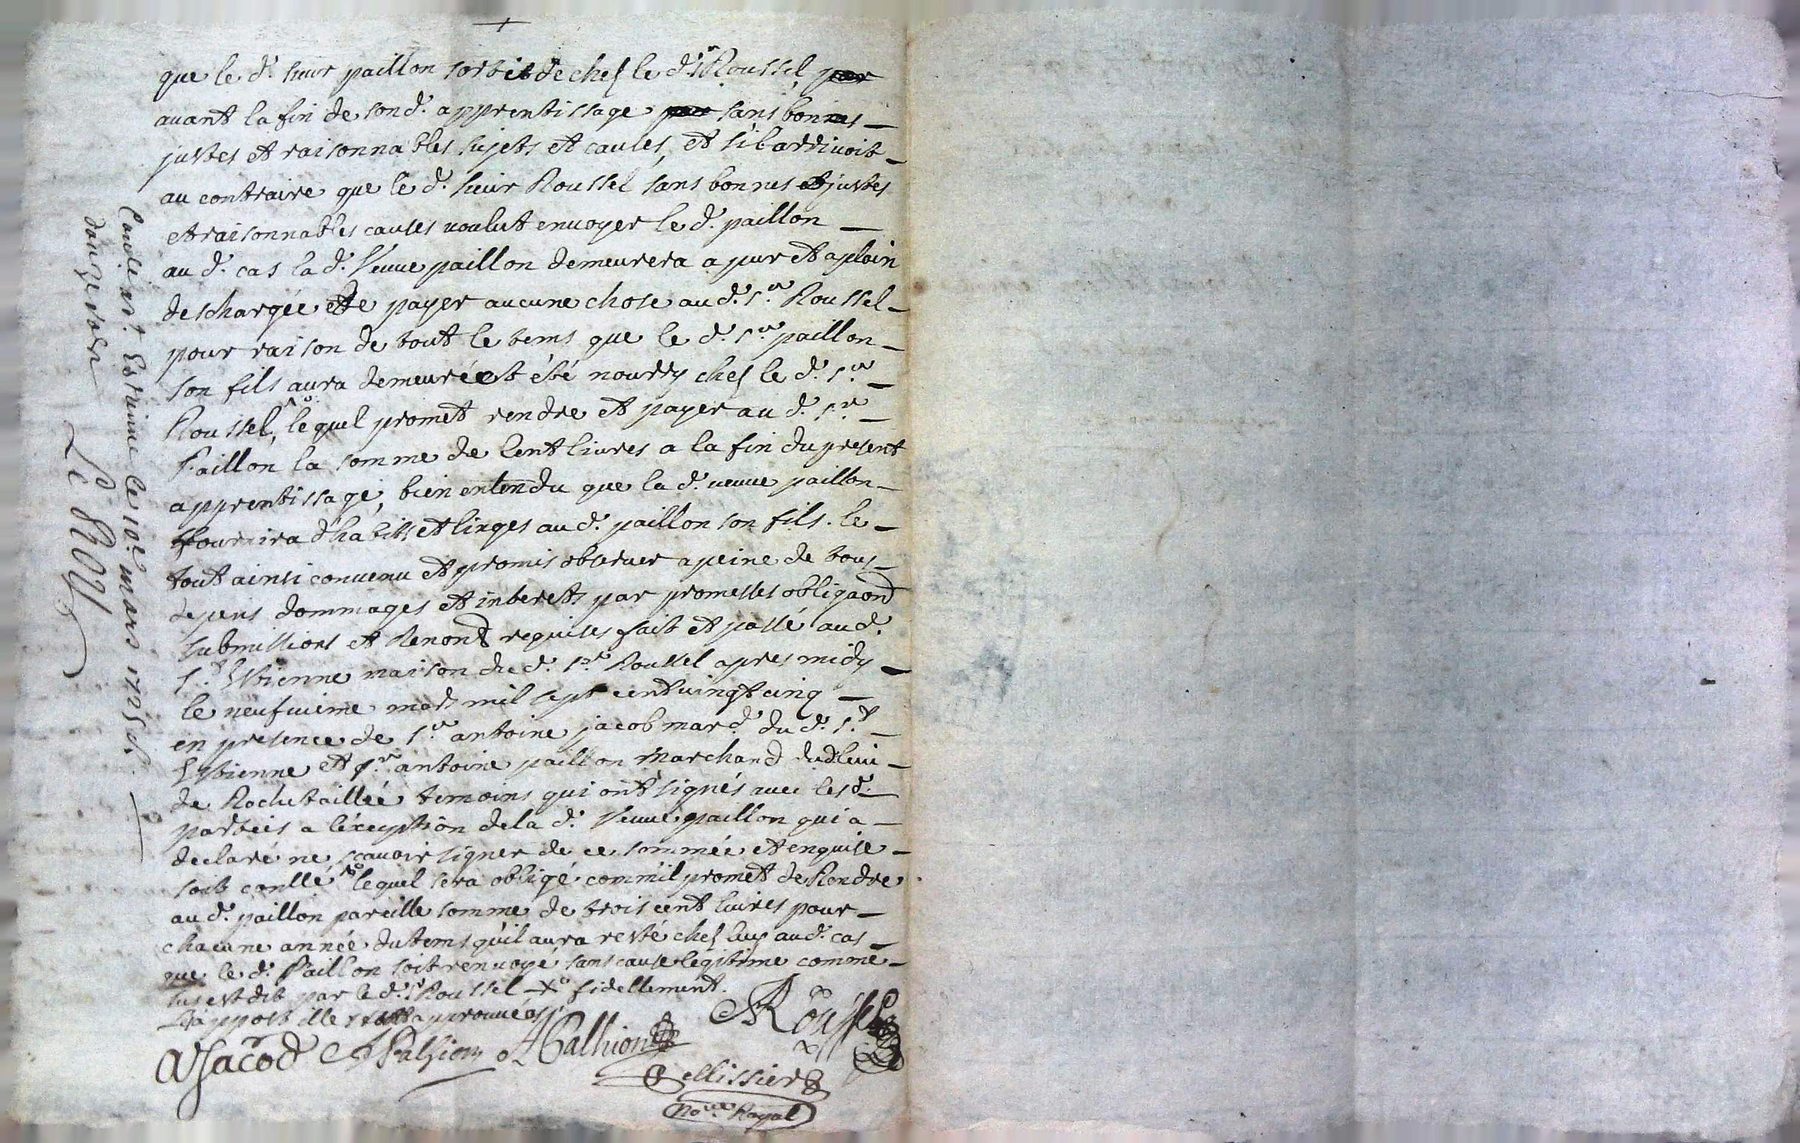 que le d.^t sieur paillon sortit de chez le d.^t s.^r Roussel par
avant la fin de son d.^t apprentissage par sans bonnes
justes et raisonnables sujets et causes, et s'il arrivoit
au contraire que le d.^t sieur Roussel sans bonnes et justes
et raisonnables causes voulut envoyer le d.^t paillon
au d.^t cas la d.^t veuve paillon demeurera a pur et a plain
deschargée de payer aucune chose au d.^t s.^r Roussel
pour raison de tout le tems que le d.^t s.^r paillon
son fils aura demeuré et été nourry chez le d.^t s.^r
Roussel, lequel promet rendre et payer au d.^t s.^r
Paillon la somme de cent livres a la fin du present
apprentissage, bien entendu que la d.^t veuve paillon
fournira d'habits et linges au d.^t paillon son fils. le
tout ainsi convenu et promis observer a peine de tous
depens dommages et interets par promesses obliga^on
submissions et Renon^on requises fait et passé au d.^t
s.^t Estienne maison du d.^t s.^r Roussel apres midy
le neufvieme mars mil sept cent vingt cinq
en presence de s.^r antoine jacob march.^d du d.^t s.^t
Estienne et s.^r antoine paillon marchand du lieu
de Rochetaillée temoins qui ont signés avec les d.^t
parties a l'exception de la d.^t veuve paillon qui a
declaré ne sçavoir signer de ce sommée et enquise
soit conllé lequel sera obligé comm'il promet de Rendre
au d.^t paillon pareille somme de trois cent livres pour
chacune année du tems qu'il aura resté chez luy au d.^t cas
que le d.^t Paillon soit renvoyé sans cause legitime comme
sus est dit par le d.^t s.^r Roussel fidellement.
approuvé
Roussel
AJacob Palhion APalhion
Pellissier
No^re Royal
Con^lé a s.^t Estienne le 10^e mars 1725
douze sols
Le Roy